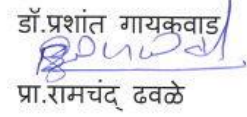 डॉ.प्रशांत गायकवाड
प्रा.रामचंद् ढवळे